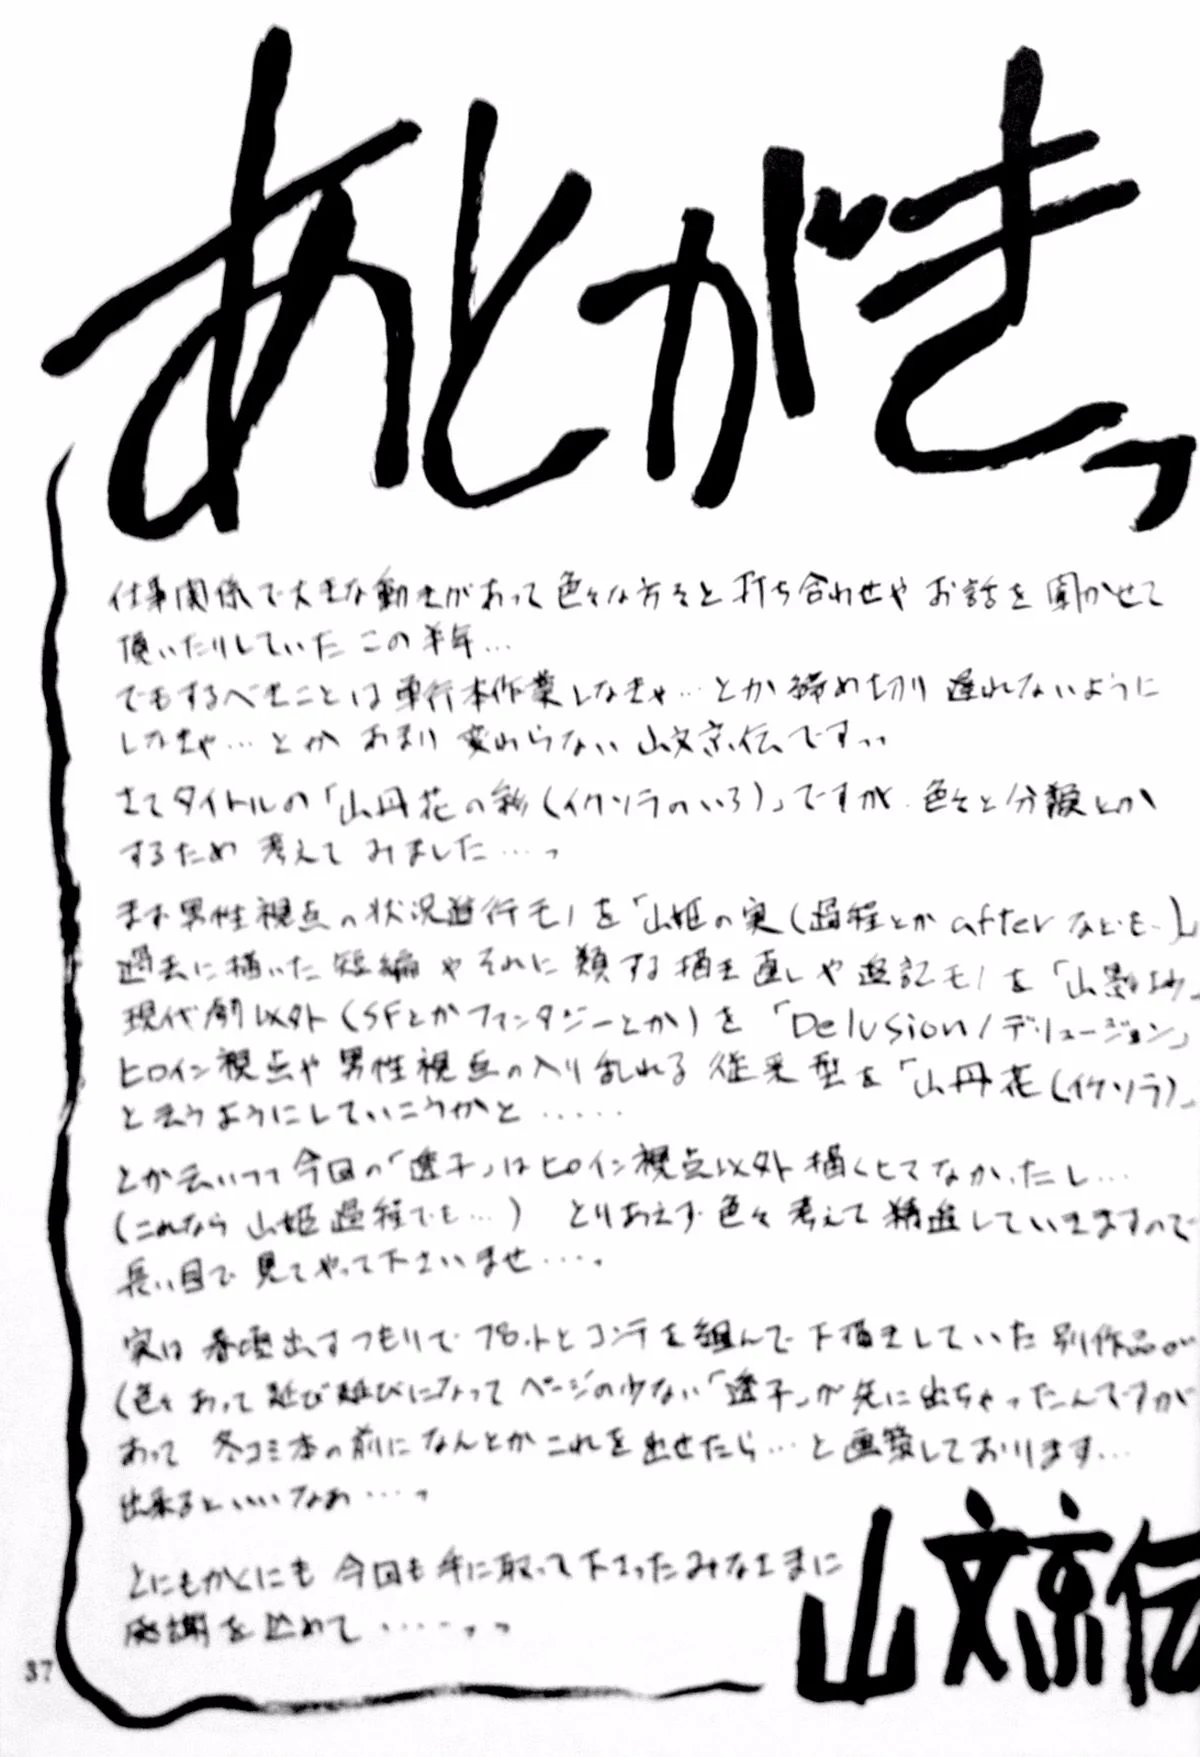 あとがきっ
仕事関係で大きな動きがあって色々な方々と打ち合わせやお話を聞かせて
頂いたりしていたこの半年…
でもするべきことは単行本作業しなきゃ…とか締め切り遅れないように
しなきゃ…とかあまり変わらない山文京伝ですっ、
さてタイトルの「山丹花の彩(イケソラのいろ)」ですが、色々と分類とか
するため考えてみました…っ
まず男性視点の状況進行モノを「山姫の実(過程とかafterなども…)」
過去に描いた短編やそれに類する描き直しや追記モノを「山影抄」
現代劇以外(SFとかファンタジーとか)を「Delusion/デリュージョン」
ヒロイン視点や男性視点の入り乱れる従来型を「山丹花(イケソラ)」
と云うようにしていこうかと……
とか云いつつ今回の「透子」はヒロイン視点以外描くヒマなかったし…
(これなら山姫過程でも…) とりあえず色々考えて精進していきますので
長い目で見てやって下さいませ…。
実は春頃出すつもりでプロットとコンテを組んで下描きしていた別作品が
(色々あって延び延びになってページの少ない「透子」が先に出ちゃったんですが
あって 冬コミ本の前になんとかこれを出せたら…と画策しております…
出来るといいなぁ…っ
とにもかくにも今回も手に取って下さったみなさまに
感謝を込めて……っっ
山文京伝
37